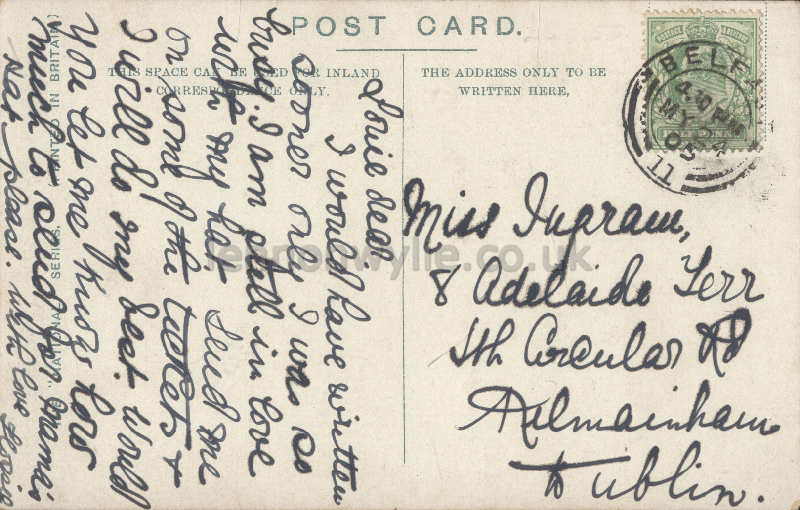 POST CARD.
THIS SPACE CAN BE USED FOR INLAND
CORRESPONDENCE ONLY.
THE ADDRESS ONLY TO BE
WRITTEN HERE,
BELFAST
4.30 PM
MY 24
05
11
Louie dear
I would have written
sooner only I was so
busy. I am still in love
with my hat send me
on some of the tickets &
I will do my best. Would
You let me know how
much to send for Mamie's
Hat please. With love
Miss Ingram,
8 Adelaide Terr
Sth Circular Rd
Kilmainham
Dublin.
"NATIONAL SERIES." (PRINTED IN BRITAIN)
lennonwylie.co.uk